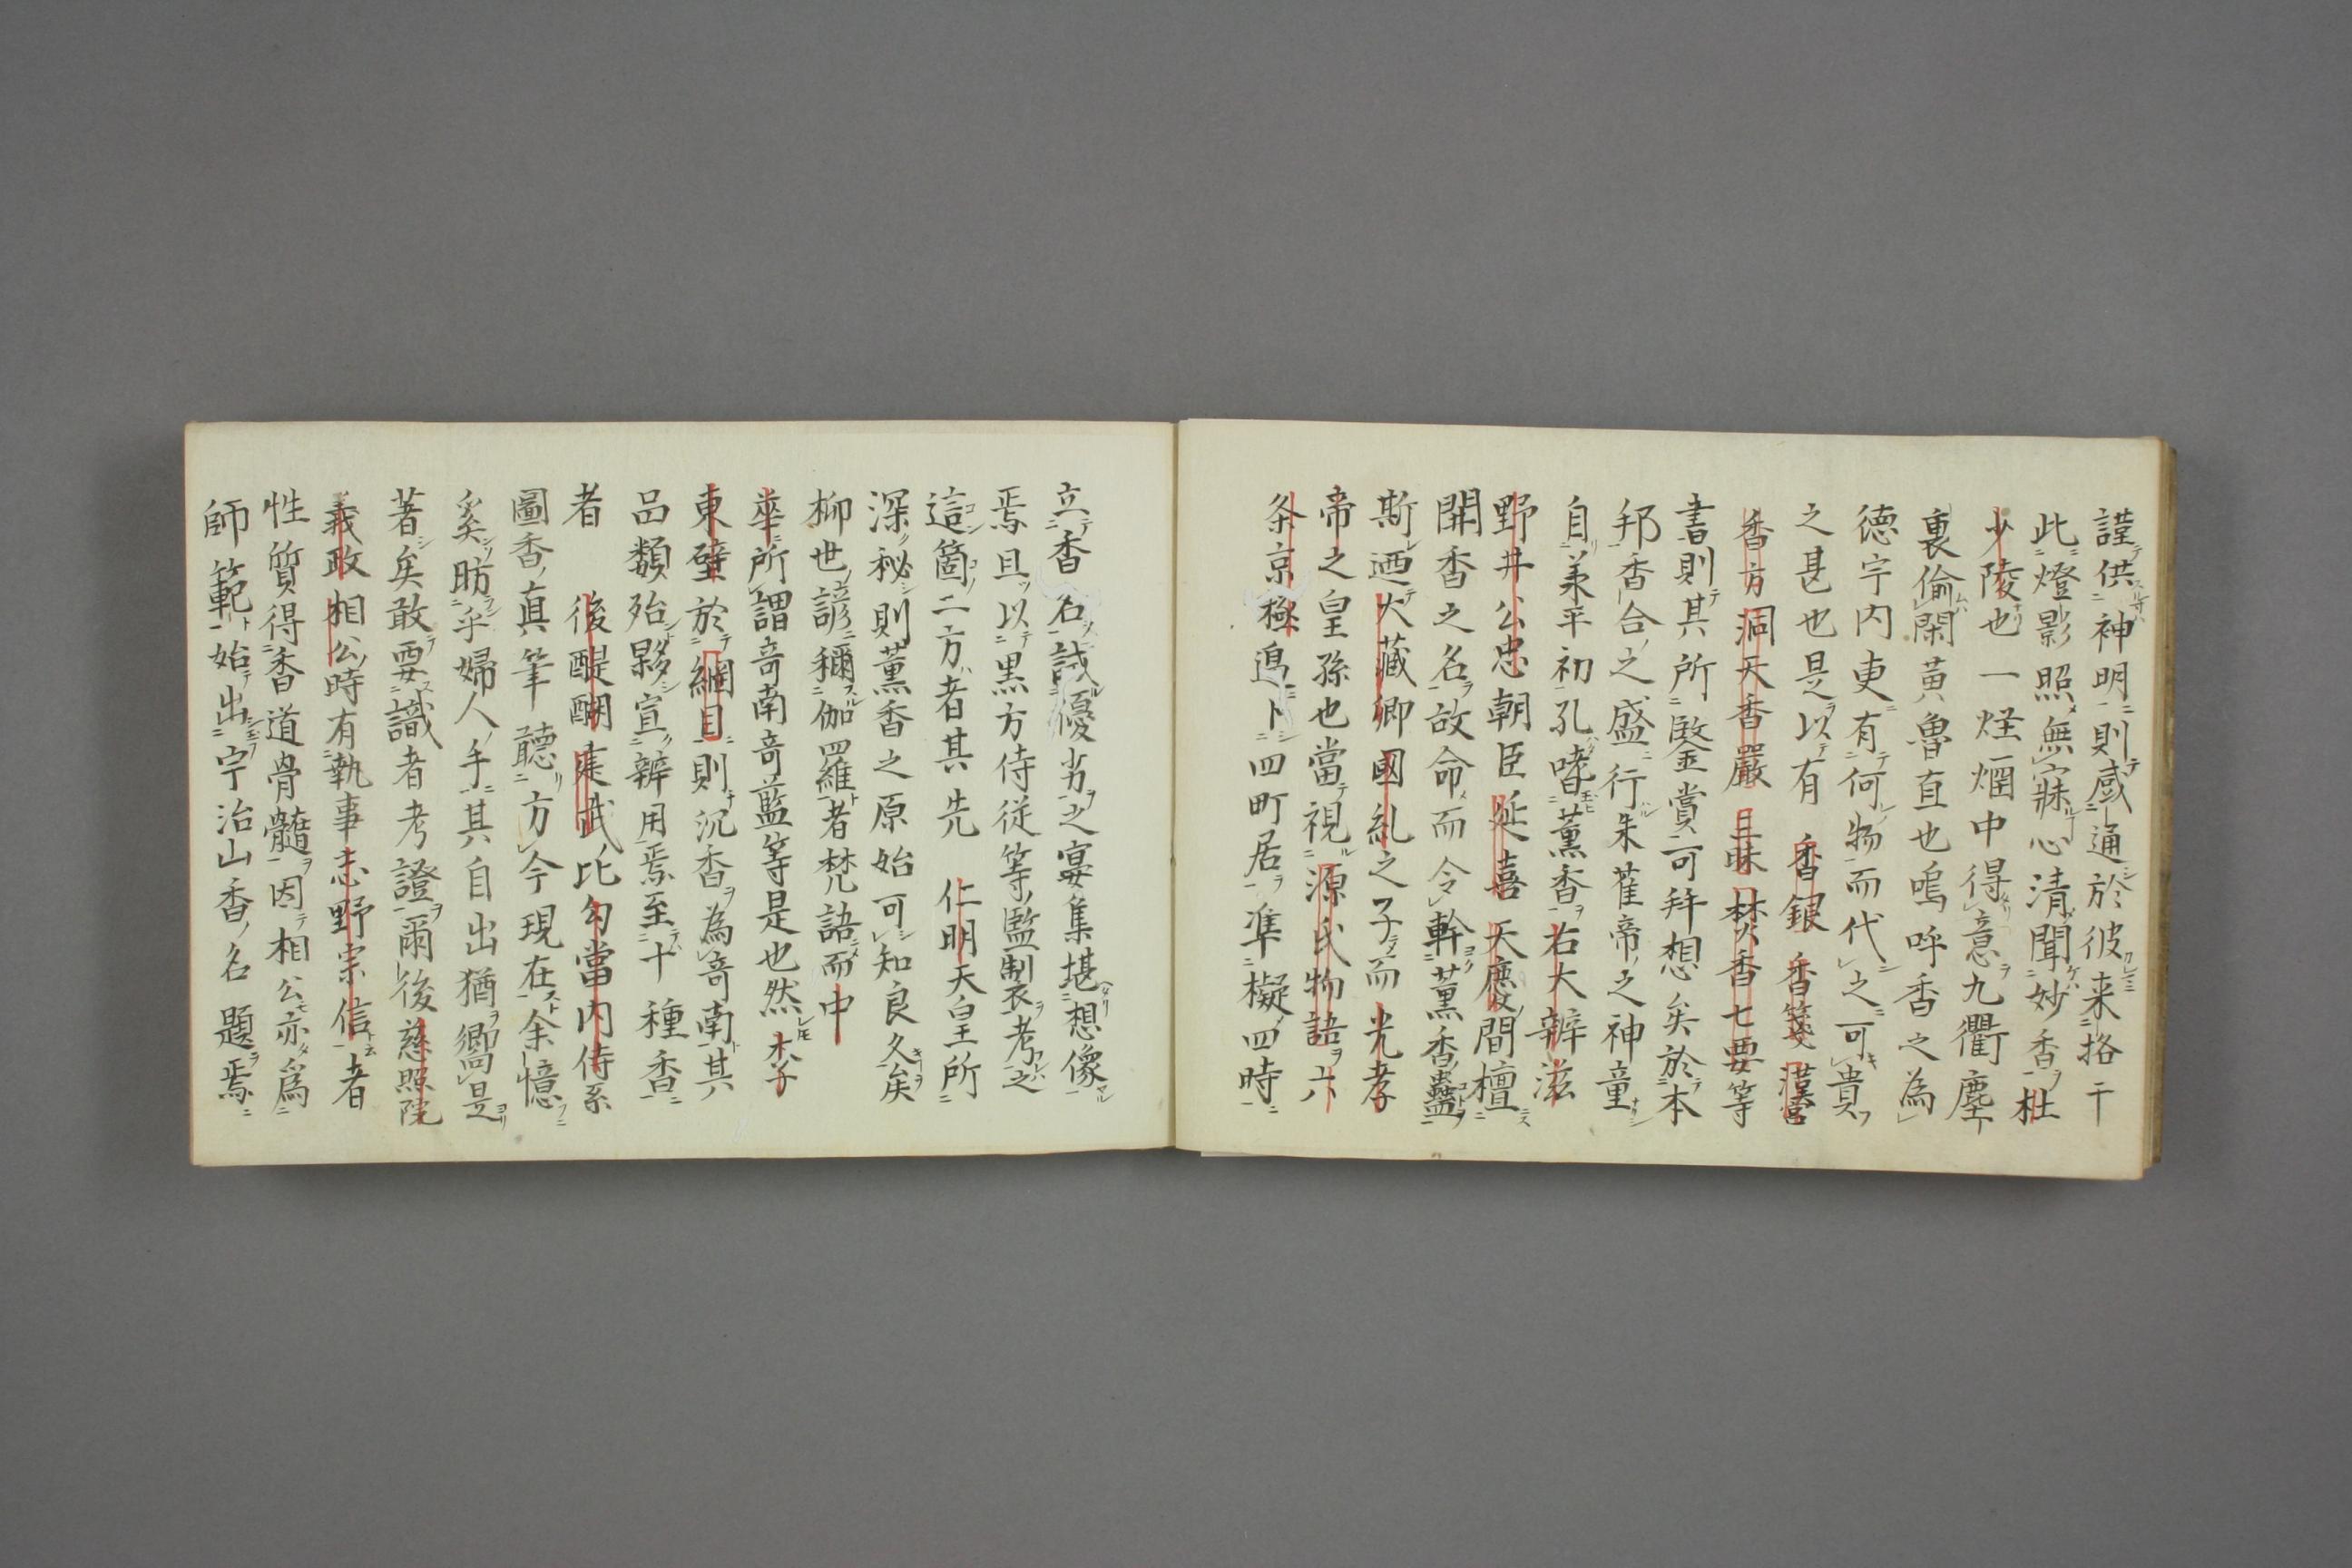 謹供神明則感通於彼来格干
此燈影照無寐心清聞妙香杜
少陵也一烓烟中得意九衢塵
裏偷閑黄魯直也嗚呼香之為
徳宇内更有何物而代之可貴
之甚也是以有香銀香箋漢宮
香方洞天香嚴三昧焚香七要等
書則其所鑒賞可拜想矣於本
邦香合之盛行朱雀帝之神童
自兼平初孔嗜薫香右大辨滋
野井公忠朝臣延喜天慶間檀
開香之名故命而令斡薫香蠱
斯迺大藏卿國乣之子而光孝
帝之皇孫也當視源氏物語六
条京極過卜四町居準擬四時
立香名試優劣之宴集堪想像
焉且以黒方侍従等監製考之
這箇二方者其先仁明天皇所
深秘則薫香之原始可知良久矣
柳世諺稱伽羅者梵語而中
華所謂奇南奇藍等是也然李
東璧於綱目則沉香為奇南其
品類殆夥宣辨用焉至十種香
者後醍醐建武比勾當内侍系
圖香真筆聽方今現在余憶
奚昉乎婦人手其自出猶嚮是
著矣敢要識者考證爾後慈照院
義政相公時有執事志野宗信者
性質得香道骨髄因相公亦為
師範始出宇治山香名題焉